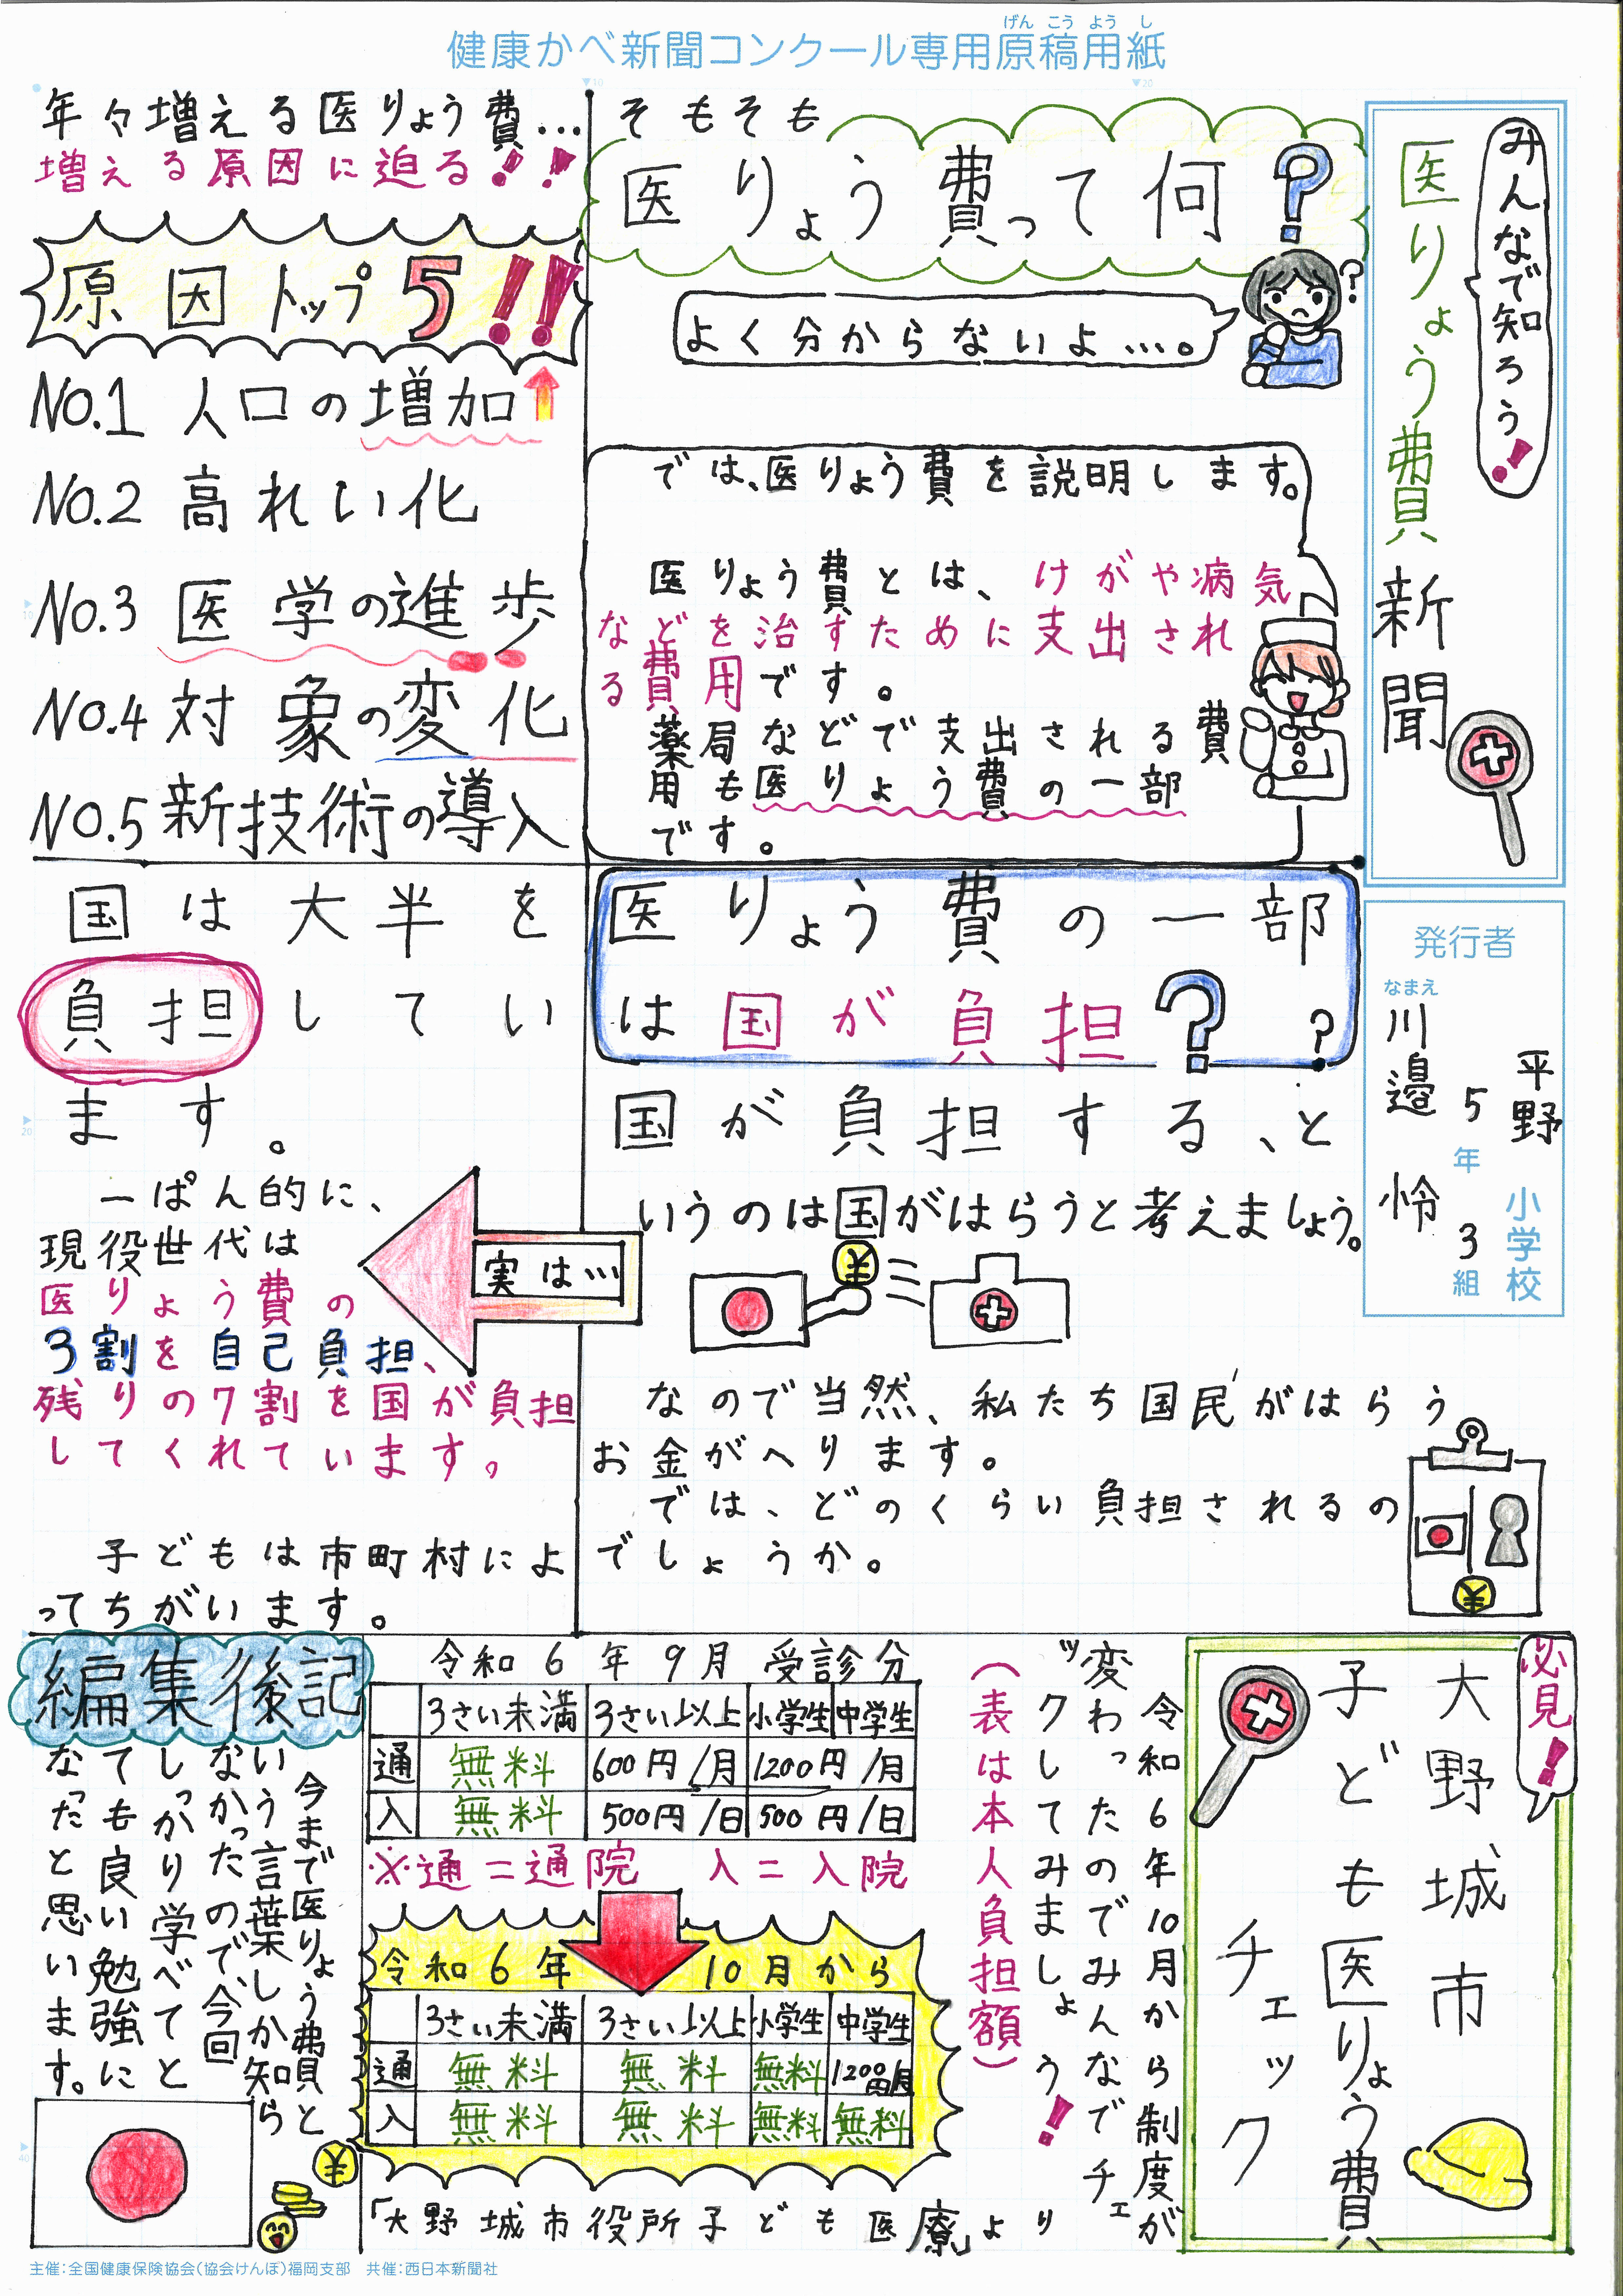 健康かべ新聞コンクール専用原稿用紙
げんこうようし
みんなで知ろう!
医りょう費新聞
発行者
平野小学校
5年3組
なまえ
川邉 怜
そもそも
医りょう費って何?
?
よく分からないよ…。
では、医りょう費を説明します。
医りょう費とは、けがや病気
などを治すために支出され
る費用です。
薬局などで支出される費
用も医りょう費の一部
です。
年々増える医りょう費…
増える原因に迫る!!
原因トップ5!!
No.1 人口の増加
No.2 高れい化
No.3 医学の進歩
No.4 対象の変化
NO.5 新技術の導入
医りょう費の一部
は国が負担??
国が負担する、と
いうのは国がはらうと考えましょう。
¥
なので当然、私たち国民がはらう
お金がへります。
では、どのくらい負担されるの
でしょうか。
¥
実は…
国は大半を
負担してい
ます。
一ぱん的に、
現役世代は
医りょう費の
3割を自己負担、
残りの7割を国が負担
してくれています。
子どもは市町村によ
ってちがいます。
必見!
大野城市
子ども医りょう費
チェック
令和6年10月から制度が
変わったのでみんなでチェ
ックしてみましょう!
(表は本人負担額)
令和6年9月受診分
3さい未満 3さい以上 小学生 中学生
通 無料 600円/月 1200円/月
入 無料 500円/日 500円/日
※通=通院 入=入院
令和6年10月から
3さい未満 3さい以上 小学生 中学生
通 無料 無料 無料 1200円/月
入 無料 無料 無料 無料
「大野城市役所子ども医療」より
編集後記
今まで医りょう費と
いう言葉しか知ら
なかったので、今回
しっかり学べてと
ても良い勉強に
なったと思います。
¥
主催:全国健康保険協会(協会けんぽ)福岡支部 共催:西日本新聞社